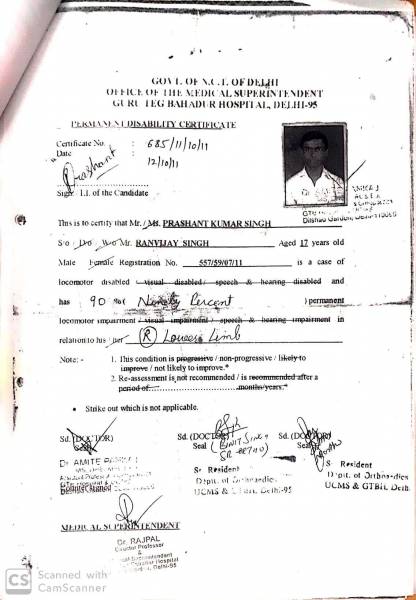 GOVT. OF N.C.T. OF DELHI
OFFICE OF THE MEDICAL SUPERINTENDENT
GURU TEG BAHADUR HOSPITAL, DELHI-95
PERMANENT DISABILITY CERTIFICATE
Certificate No. : 685/11/10/11
Date : 12/10/11
Prashant
Sign. T.I. of the Candidate
Dilshad Garden, Delhi-110095
This is to certify that Mr. / Ms. PRASHANT KUMAR SINGH
S/o D/o W/o Mr. RANVIJAY SINGH Aged 17 years old
Male Female Registration No. 557/59/07/11 is a case of
locomotor disabled / visual disabled / speech & hearing disabled and
has 90 % ( Ninety Percent ) permanent
locomotor impairment / visual impairment / speech & hearing impairment in
relation to his / her (R) Lower Limb
Note: - 1. This condition is progressive / non-progressive / likely to
improve / not likely to improve.*
2. Re-assessment is not recommended / is recommended after a
period of months/years.*
• Strike out which is not applicable.
Sd. (DOCTOR) Sd. (DOCTOR) Sd. (DOCTOR)
Seal Seal Seal
Sr Resident
Deptt. of Orthopaedics
UCMS & GTBH, Delhi-95
Sr Resident
Deptt. of Orthopaedics
UCMS & GTBH, Delhi
Countersigned
MEDICAL SUPERINTENDENT
Dr. RAJPAL
Professor
Superintendent
Hospital
Delhi-95
CS Scanned with
CamScanner